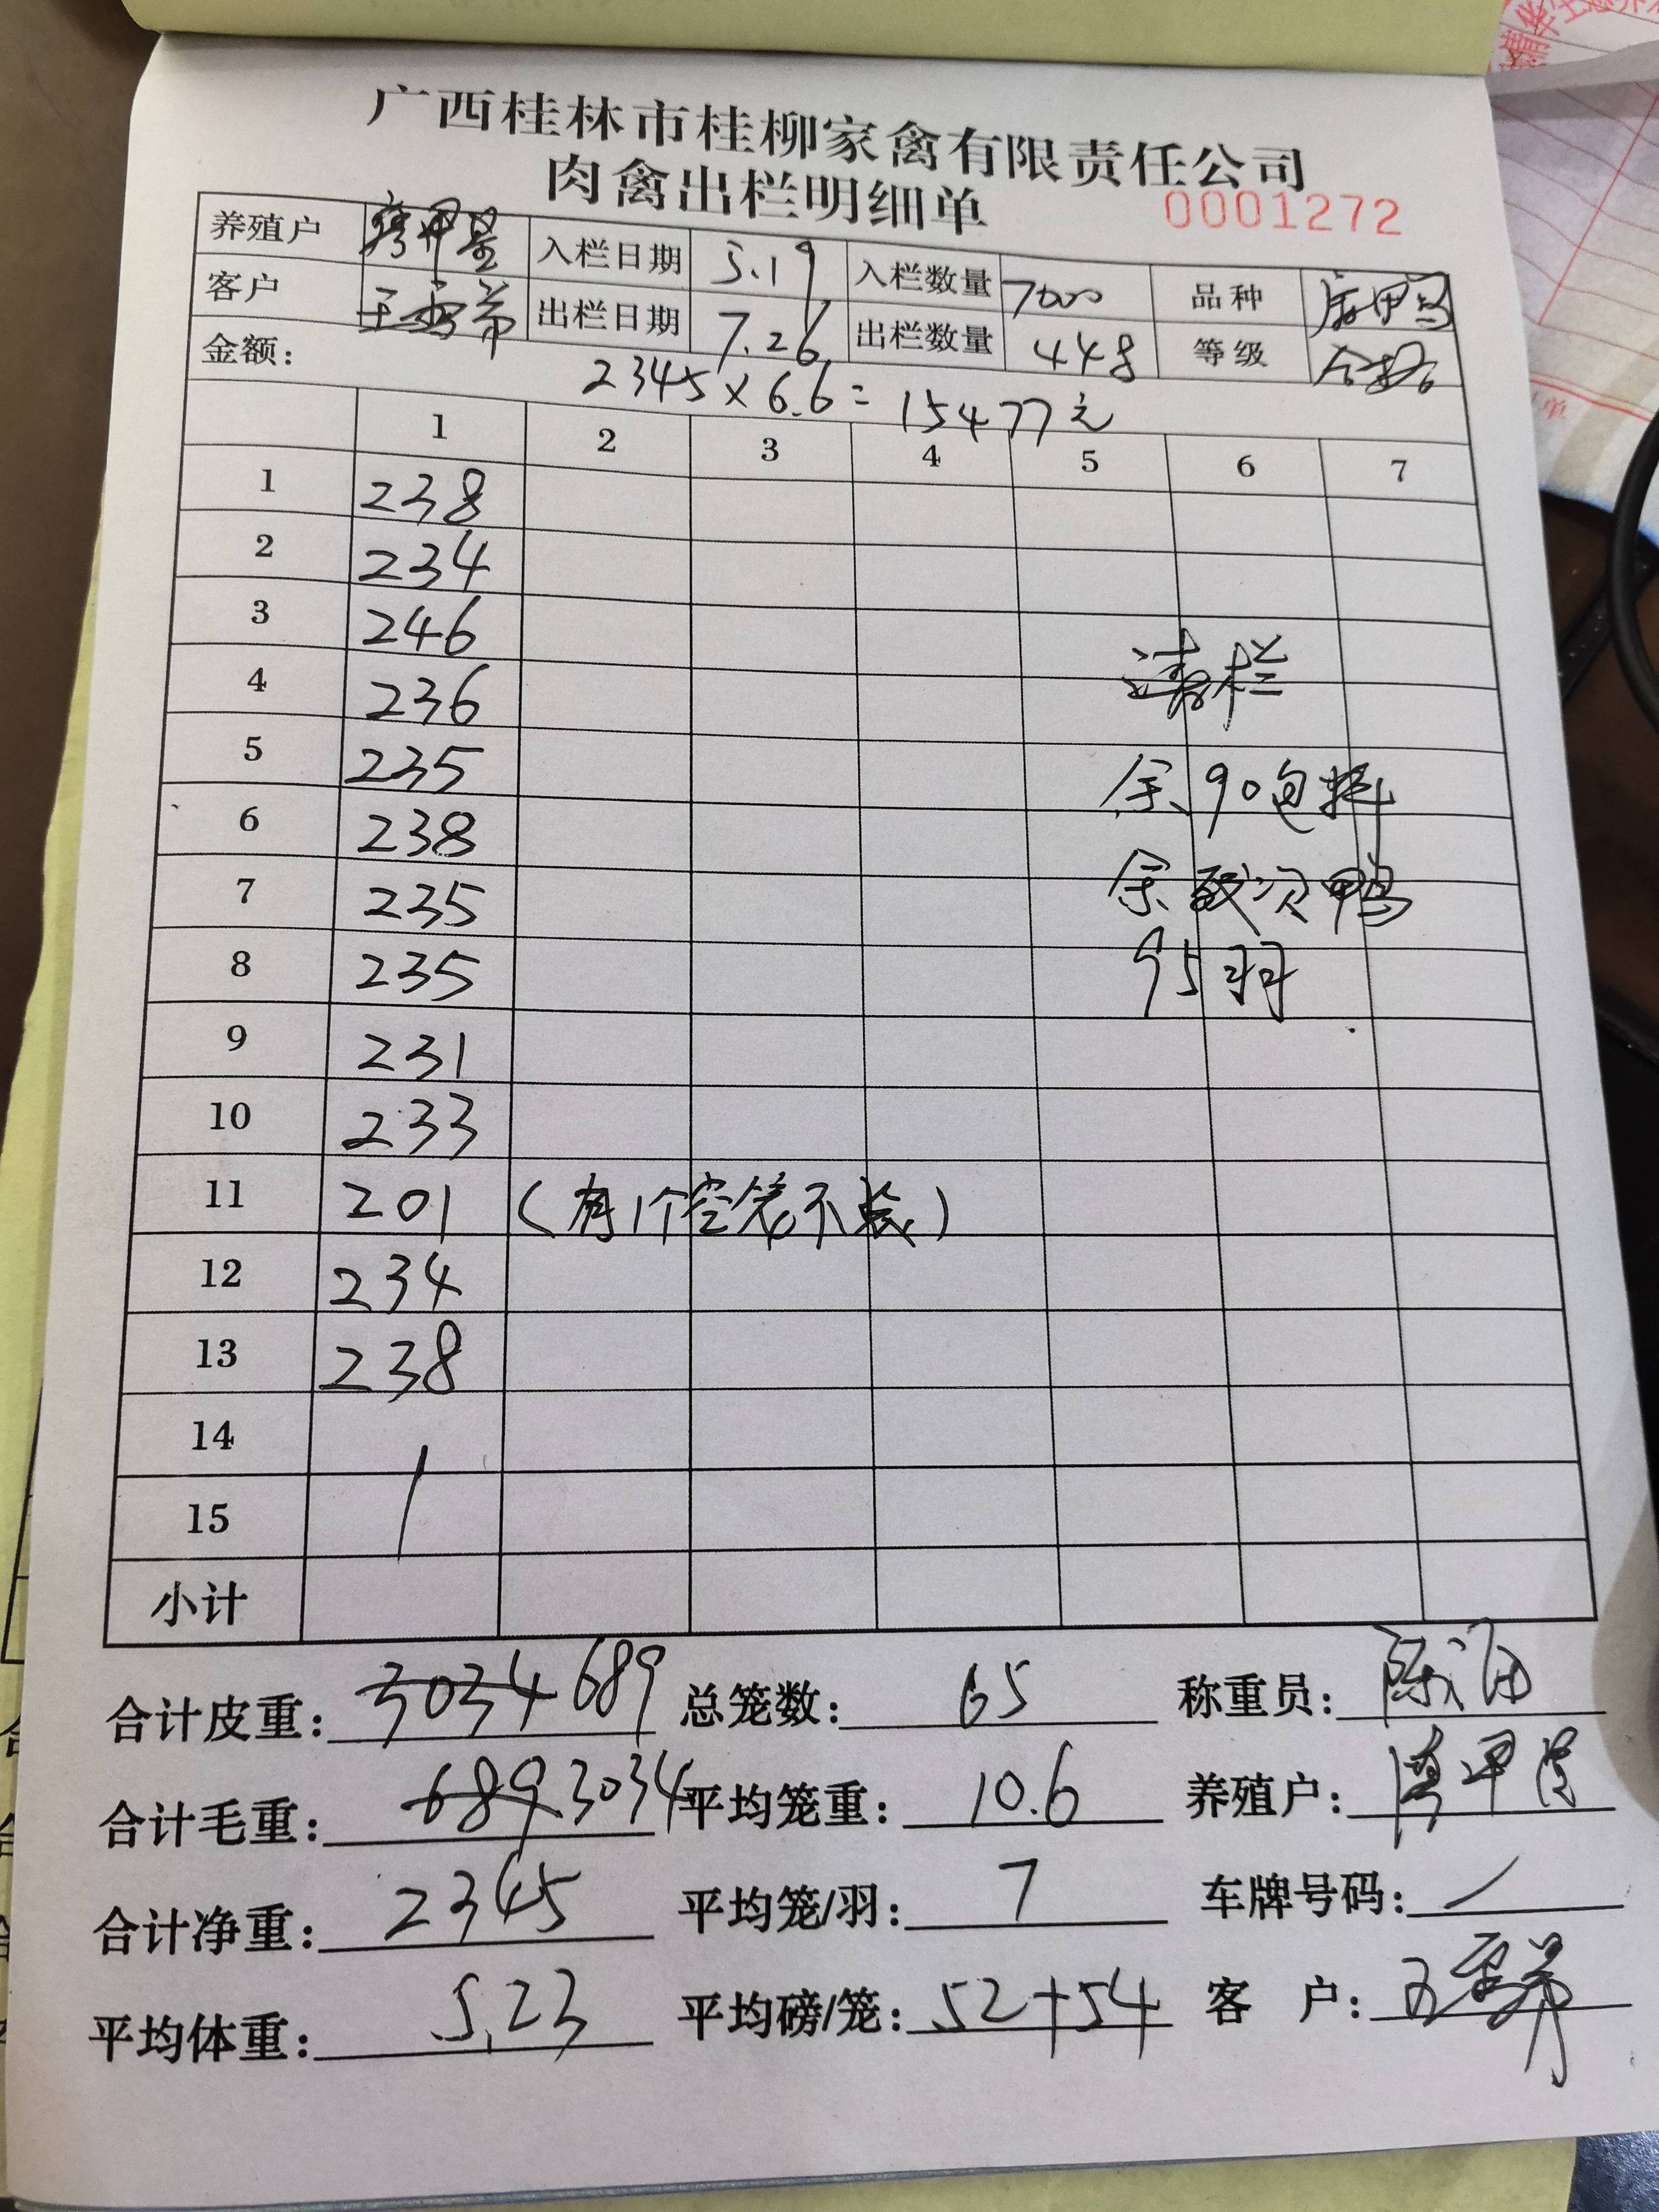 广西桂林市桂柳家禽有限责任公司
肉禽出栏明细单
0001272
养殖户 入栏日期 5.19 入栏数量 7000 品种
客户 出栏日期 7.26 出栏数量 448 等级 合格
金额: 2345×6.6=15477元
1 2 3 4 5 6 7
1 238
2 234
3 246
4 236 清栏
5 235
6 238 余90包料
7 235 余残次鸭
8 235 95羽
9 231
10 233
11 201 (有1个空笼不装)
12 234
13 238
14
15
小计
合计皮重: 3034 689 总笼数: 65 称重员:
合计毛重: 689 3034 平均笼重: 10.6 养殖户:
合计净重: 2345 平均笼/羽: 7 车牌号码:
平均体重: 5.23 平均磅/笼: 52+54 客 户: